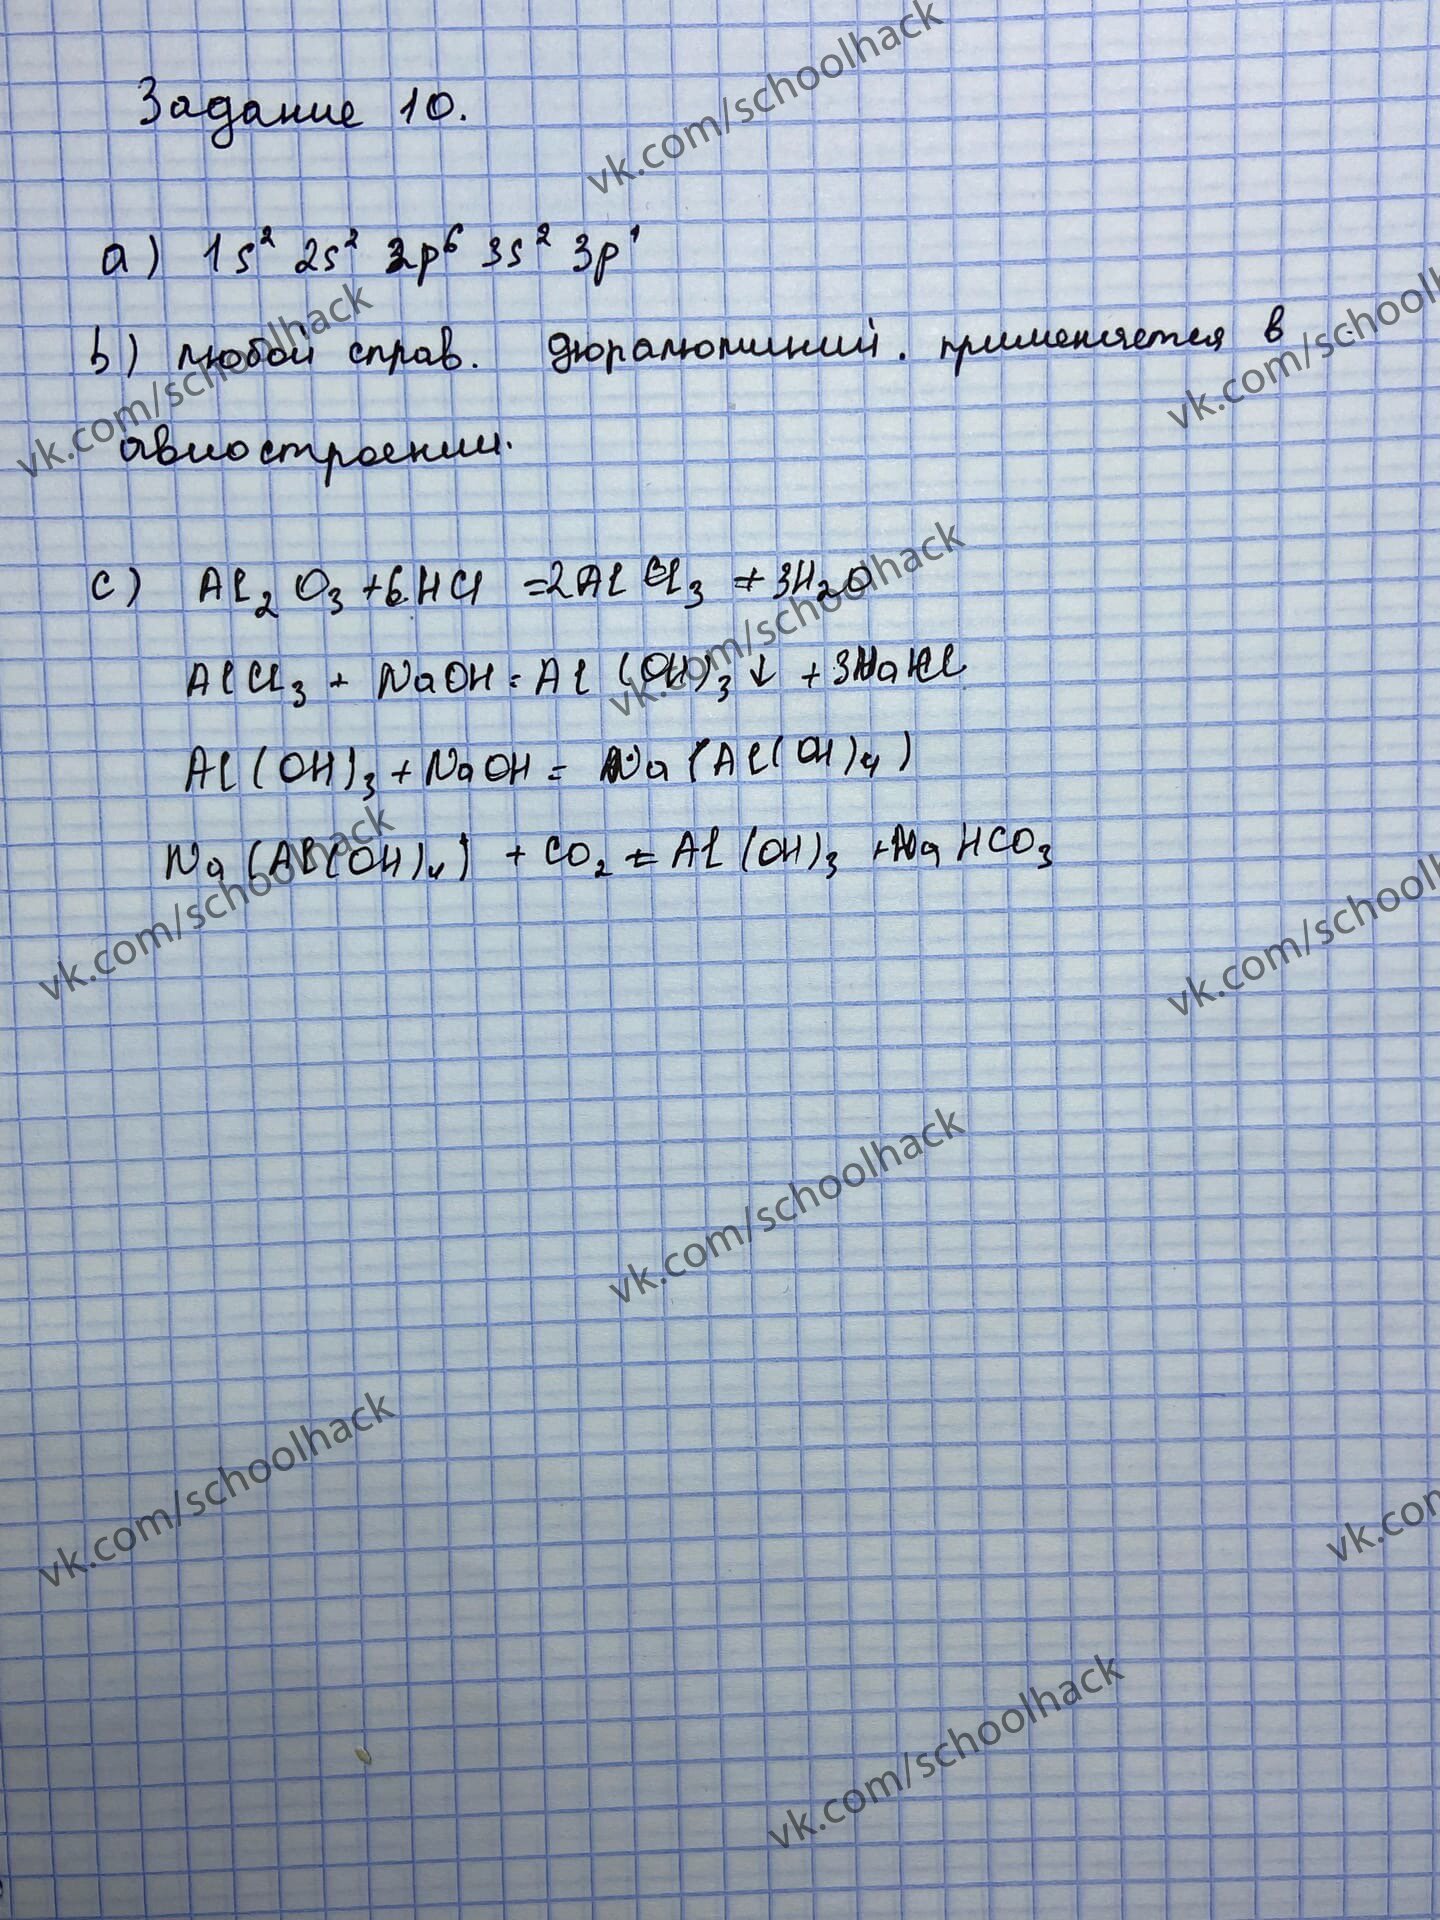 Задание 10.
a) 1s² 2s² 2p⁶ 3s² 3p¹
b) любой сплав. дюралюминий. применяется в
авиостроении.
c) Al₂O₃ + 6HCl = 2AlCl₃ + 3H₂O
AlCl₃ + NaOH = Al(OH)₃↓ + 3NaCl
Al(OH)₃ + NaOH = Na(Al(OH)₄)
Na(Al(OH)₄) + CO₂ = Al(OH)₃ + NaHCO₃
vk.com/schoolhack
vk.com/schoolhack
vk.com/schoolh
vk.com/schoolhack
vk.com/schoolhack
vk.com/schoolh
vk.com/schoolhack
vk.com/schoolhack
vk.com
vk.com/schoolhack